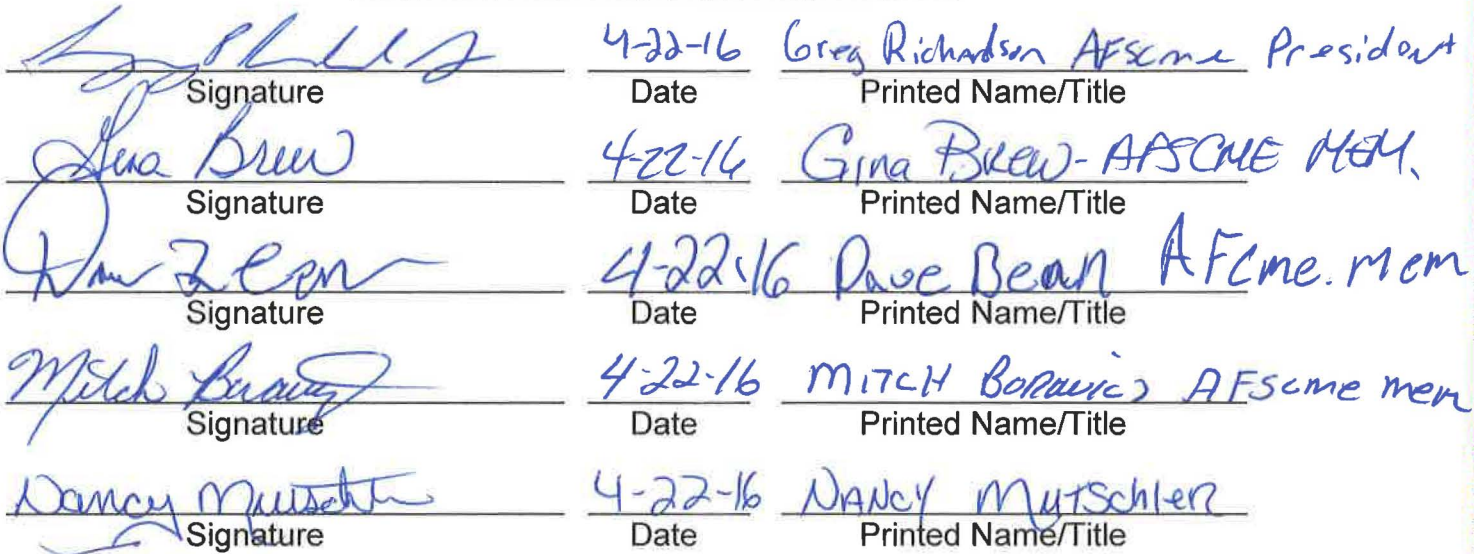 4-22-16 Greg Richardson AFscme President
Signature Date Printed Name/Title
Gina Brew 4-22-16 Gina Brew - AFSCME MEM.
Signature Date Printed Name/Title
4-22-16 Dave Bean AFcme. mem
Signature Date Printed Name/Title
Mitch 4-22-16 MITCH AFscme mem
Signature Date Printed Name/Title
Nancy Mutschler 4-22-16 NANCY MUTSCHLER
Signature Date Printed Name/Title